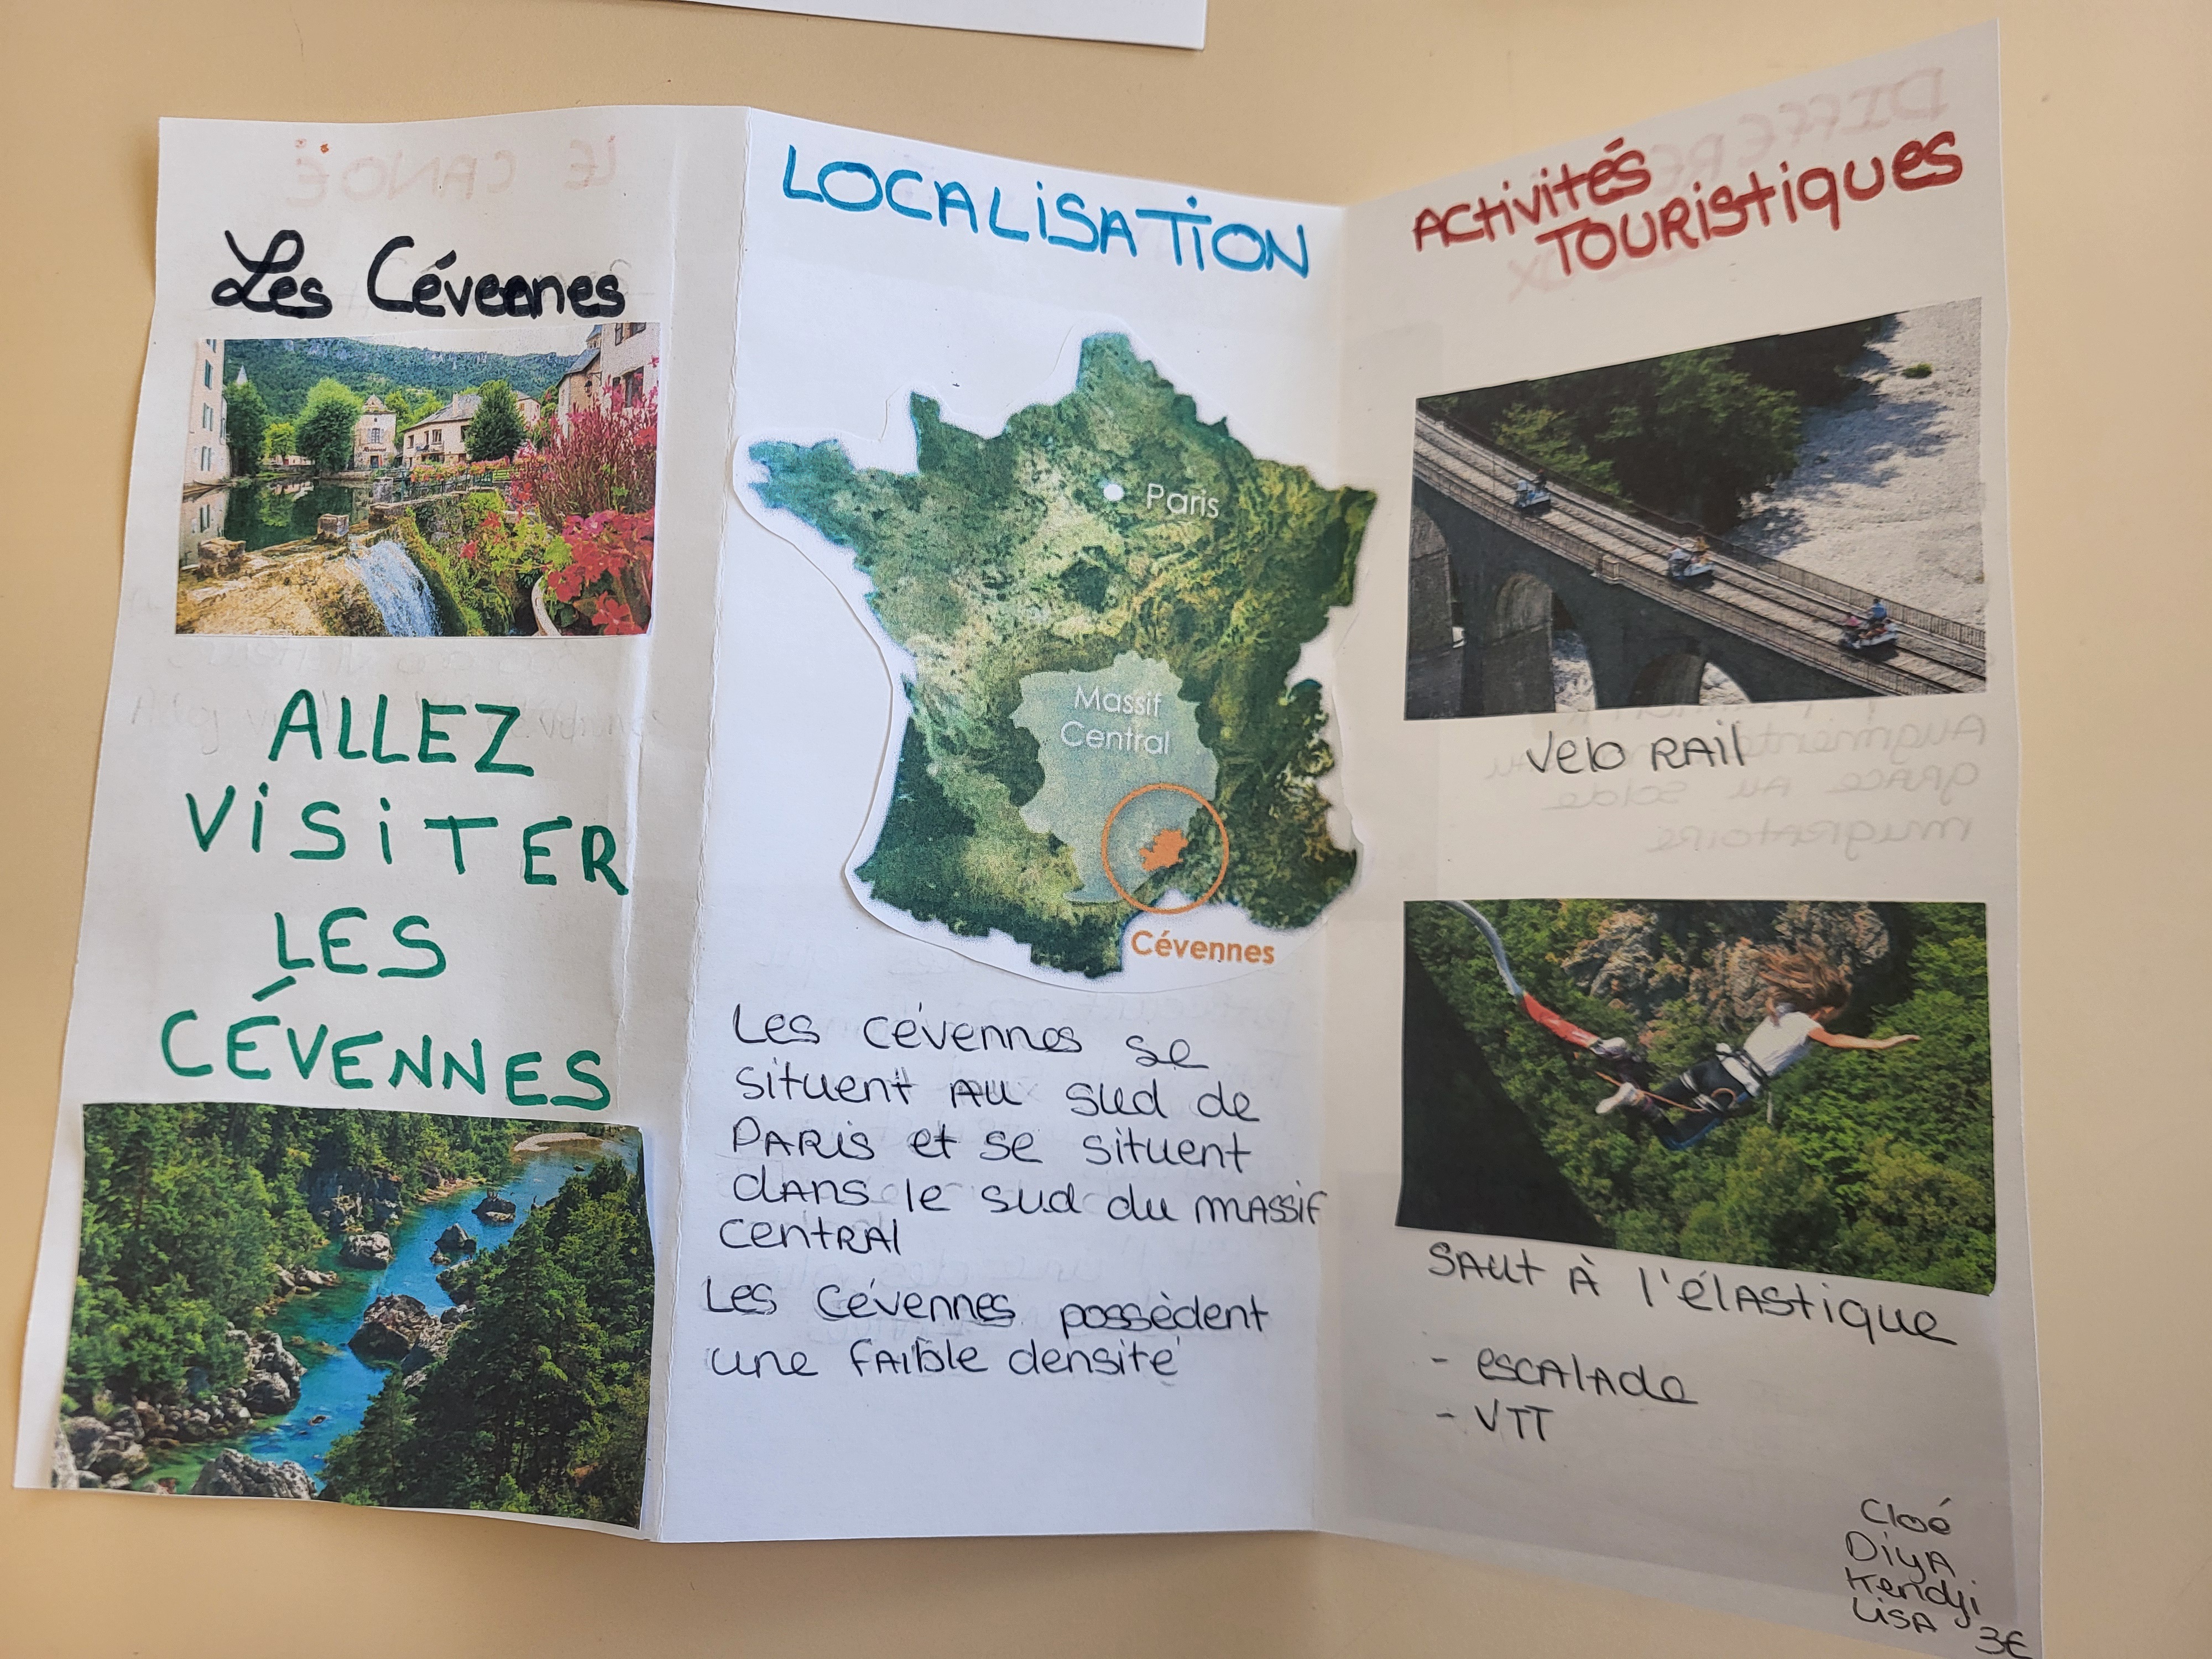 Les Cévennes
ALLEZ
VISITER
LES
CÉVENNES
LOCALISATION
Paris
Massif
Central
Cévennes
Les Cévennes se
situent au sud de
Paris et se situent
dans le sud du massif
central
Les Cévennes possèdent
une faible densité
Activités
Touristiques
Velo Rail
Saut à l'élastique
- escalade
- VTT
Cloé
Diya
Kendji
Lisa 3E
LE CANOË